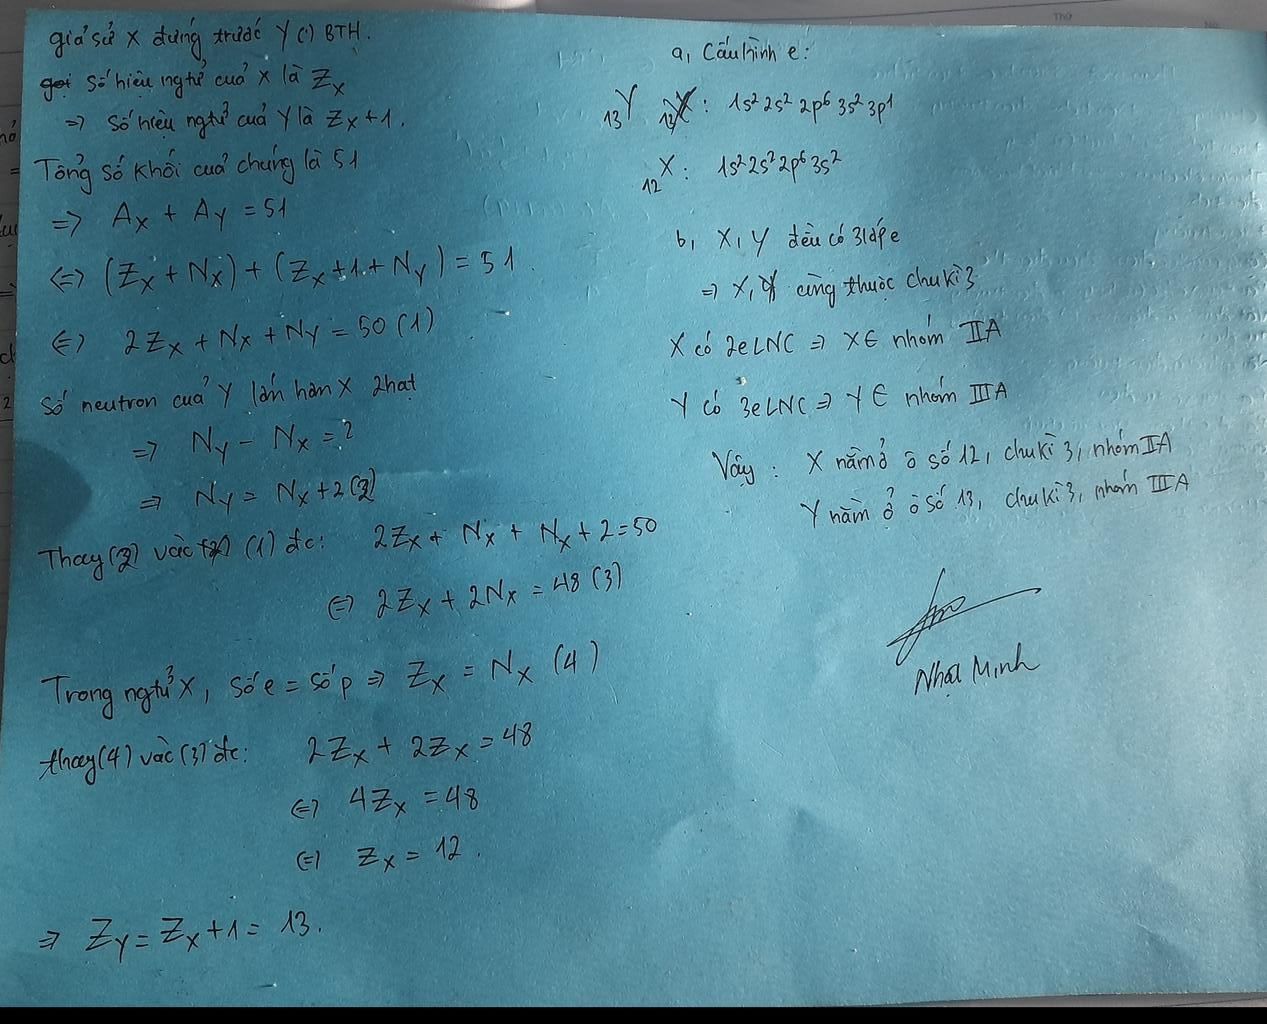 giả sử X đứng trước Y (') BTH.
số hiệu ngtử của X là Zₓ
=> số hiệu ngtử của Y là Zₓ+1.
Tổng số khối của chúng là 51
=> Aₓ + A_Y = 51
<=> (Zₓ + Nₓ) + (Zₓ+1+N_Y) = 51
<=> 2Zₓ + Nₓ + N_Y = 50 (1)
Số neutron của Y lớn hơn X 2 hạt
=> N_Y - Nₓ = 2
=> N_Y = Nₓ+2 (2)
Thay (2) vào (1) đc: 2Zₓ + Nₓ + Nₓ + 2 = 50
<=> 2Zₓ + 2Nₓ = 48 (3)
Trong ngtử X, số e = số p => Zₓ = Nₓ (4)
thay (4) vào (3) đc: 2Zₓ + 2Zₓ = 48
<=> 4Zₓ = 48
<=> Zₓ = 12.
=> Z_Y = Zₓ+1 = 13.
a, Cấu hình e:
₁₃Y : 1s² 2s² 2p⁶ 3s² 3p¹
₁₂X : 1s² 2s² 2p⁶ 3s²
b, X, Y đều có 3 lớp e
=> X, Y cùng thuộc chu kì 3
X có 2e LNC => X ∈ nhóm IIA
Y có 3e LNC => Y ∈ nhóm IIIA
Vậy : X nằm ở ô số 12, chu kì 3, nhóm IIA
Y nằm ở ô số 13, chu kì 3, nhóm IIIA
Nhật Minh